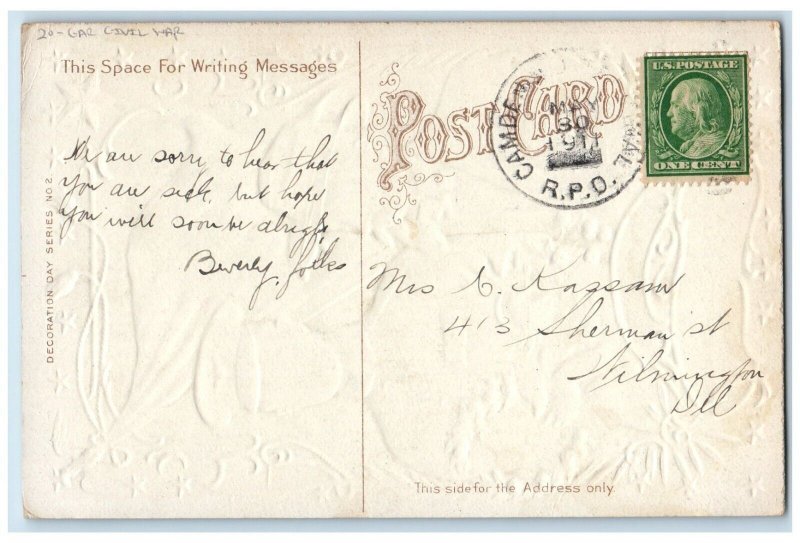 20 - GAR CIVIL WAR
This Space For Writing Messages
We are sorry to hear that
you are sick, but hope
you will soon be alright
Beverly folks
DECORATION DAY SERIES NO 2.
POST CARD
MAY
30
1911
R.P.O.
U.S. POSTAGE
ONE CENT
Mrs C. Kassam
413 Sherman st
Wilmington
Del
This side for the Address only.